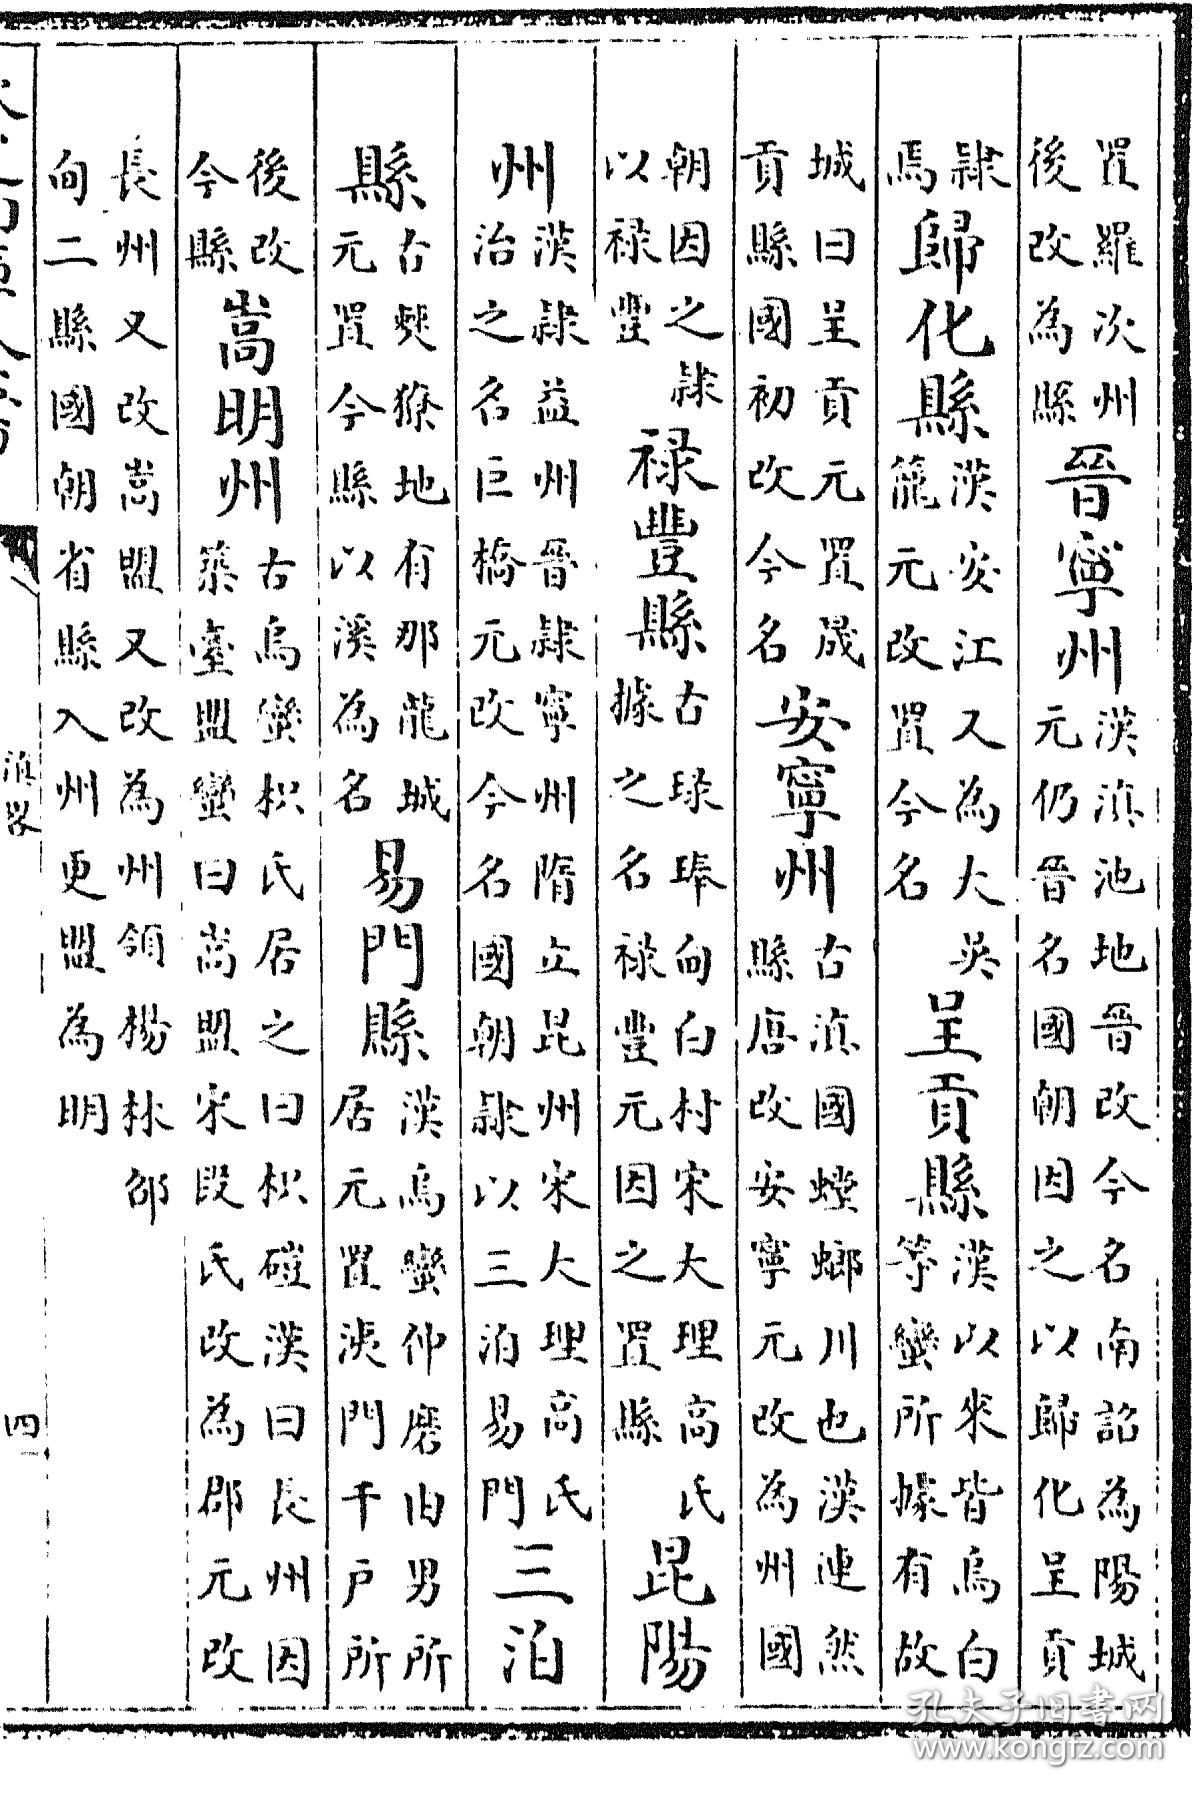 置羅次州後改為縣晉寧州漢滇池地晉改今名南詔為陽城元仍晉名國朝因之以歸化呈貢
隷焉歸化縣漢安江又為大吳籠元改置今名呈貢縣漢以來皆烏白等蠻所據有故
城曰呈貢元置晟貢縣國初改今名安寧州古滇國螳螂川也漢連然縣唐改安寧元改為州國
朝因之隷以禄豐禄豐縣古琭琫向白村宋大理高氏據之名禄豐元因之置縣昆陽
州漢隷益州晉隷寧州隋立昆州宋大理高氏治之名巨橋元改今名國朝隷以三泊易門三泊
縣古僰猴地有那龍城元置今縣以溪為名易門縣漢烏蠻仲磨由男所居元置洟門千户所
後改今縣嵩明州古烏蠻枳氏居之曰枳磑漢曰長州因築臺盟蠻曰嵩盟宋段氏改為郡元改
長州又改嵩盟又改為州領楊林邵向二縣國朝省縣入州更盟為明
滇畧
四
孔夫子旧書网
www.kongfz.com